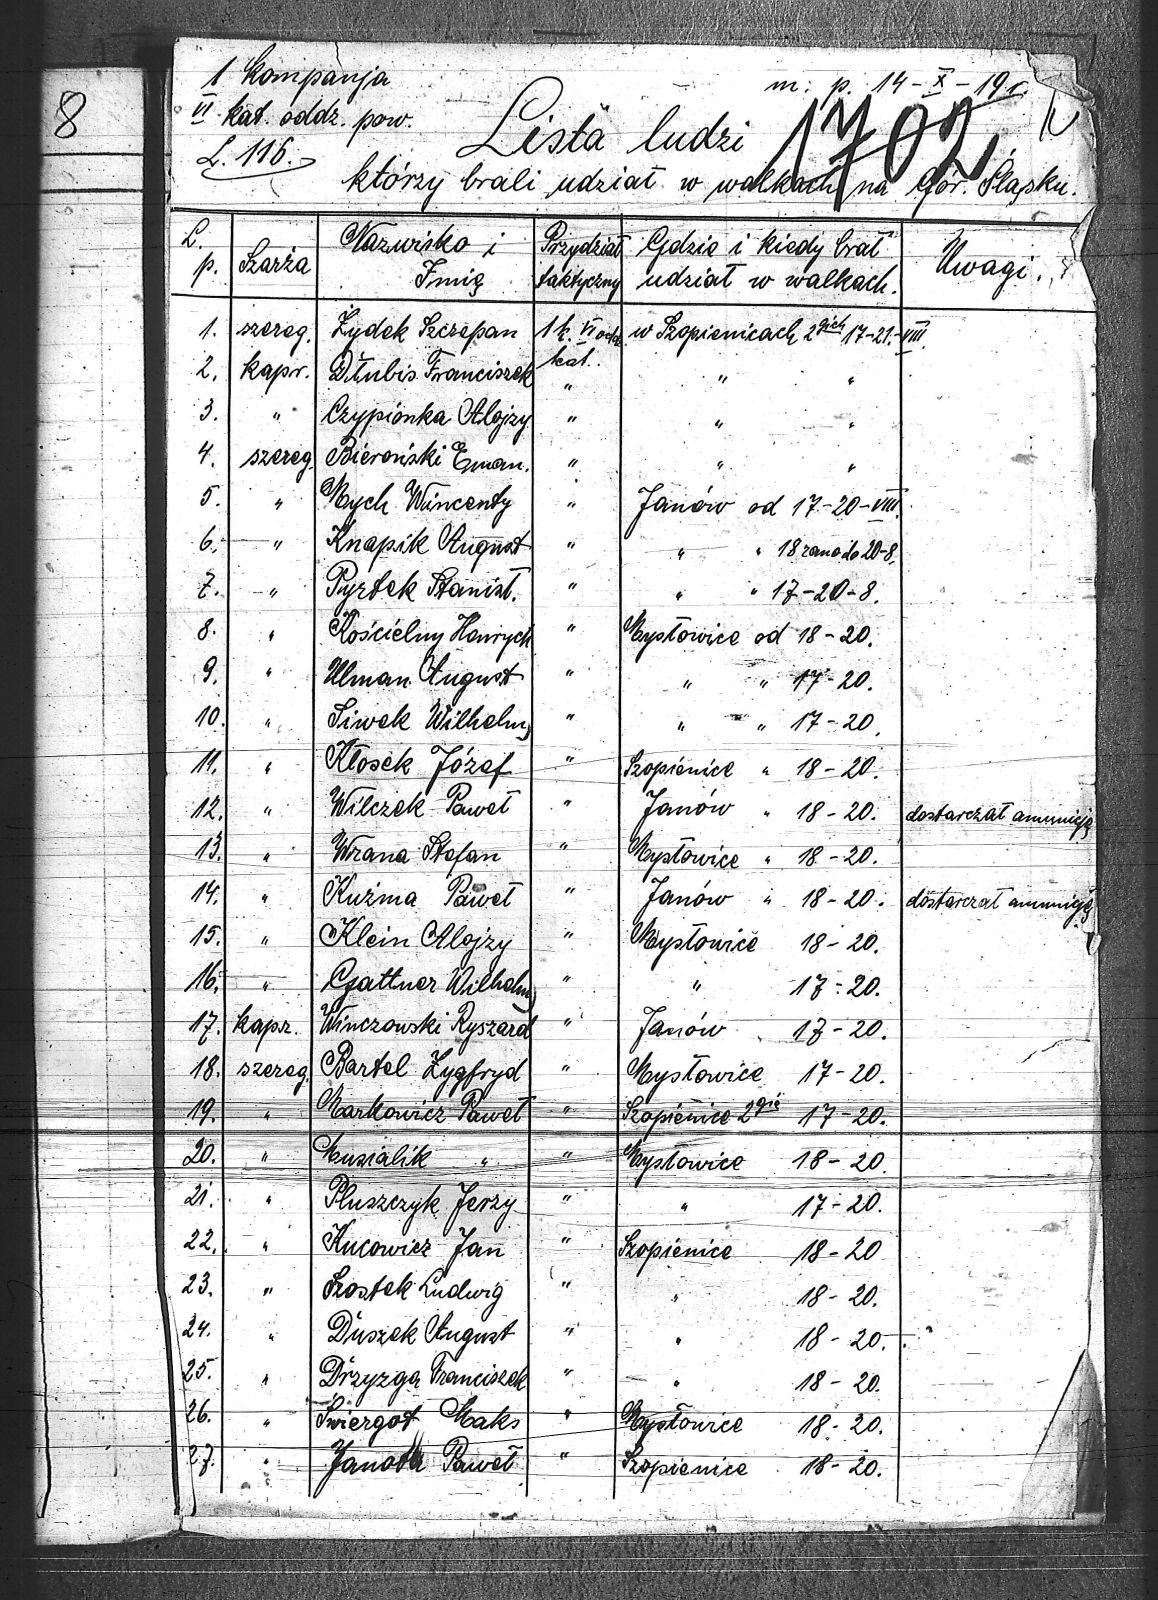 8
1 kompanja
VI kat. oddz. pow.
L. 116.
m. p. 14-X-19r.
1702
Lista ludzi
którzy brali udział w walkach na Gór. Śląsku.
L. p. Szarża Nazwisko i Imię Przydział taktyczny Gdzie i kiedy brał udział w walkach. Uwagi.
1. szereg. Żydek Szczepan 1 k. VI odd. kat. w Szopienicach 2gich 17-21.-VIII.
2. kapr. Dłubis Franciszek " " "
3. " Czypionka Alojzy " " "
4. szereg. Bieroński Eman. " " "
5. " Mych Wincenty " Janów od 17-20-VIII.
6. " Knapik August " " " 18 rano do 20-8.
7. " Pyrtek Stanisł. " " " 17-20-8.
8. " Kościelny Henryck " Mysłowice od 18-20.
9. " Ulman August " " " 17-20.
10. " Siwek Wilhelm " " " 17-20.
11. " Kłosek Józef " Szopienice " 18-20.
12. " Wilczek Paweł " Janów " 18-20. dostarczał amunicję
13. " Wrana Stefan " Mysłowice " 18-20.
14. " Kuźma Paweł " Janów " 18-20. dostarczał amunicję
15. " Klein Alojzy " Mysłowice 18-20.
16. " Gattner Wilhelm " " 17-20.
17. kapr. Winczowski Ryszard " Janów 17-20.
18. szereg. Bartel Zygfryd " Mysłowice 17-20.
19. " Markowicz Paweł " Szopienice 2gie 17-20.
20. " Musialik " " Mysłowice 18-20.
21. " Pluszczyk Jerzy " " 17-20.
22. " Kucowicz Jan " Szopienice 18-20
23. " Szostek Ludwig " " 18-20.
24. " Duszek August " " 18-20.
25. " Drzyzga Franciszek " " 18-20.
26. " Świergot Maks " Mysłowice 18-20.
27. " Janota Paweł " Szopienice 18-20.